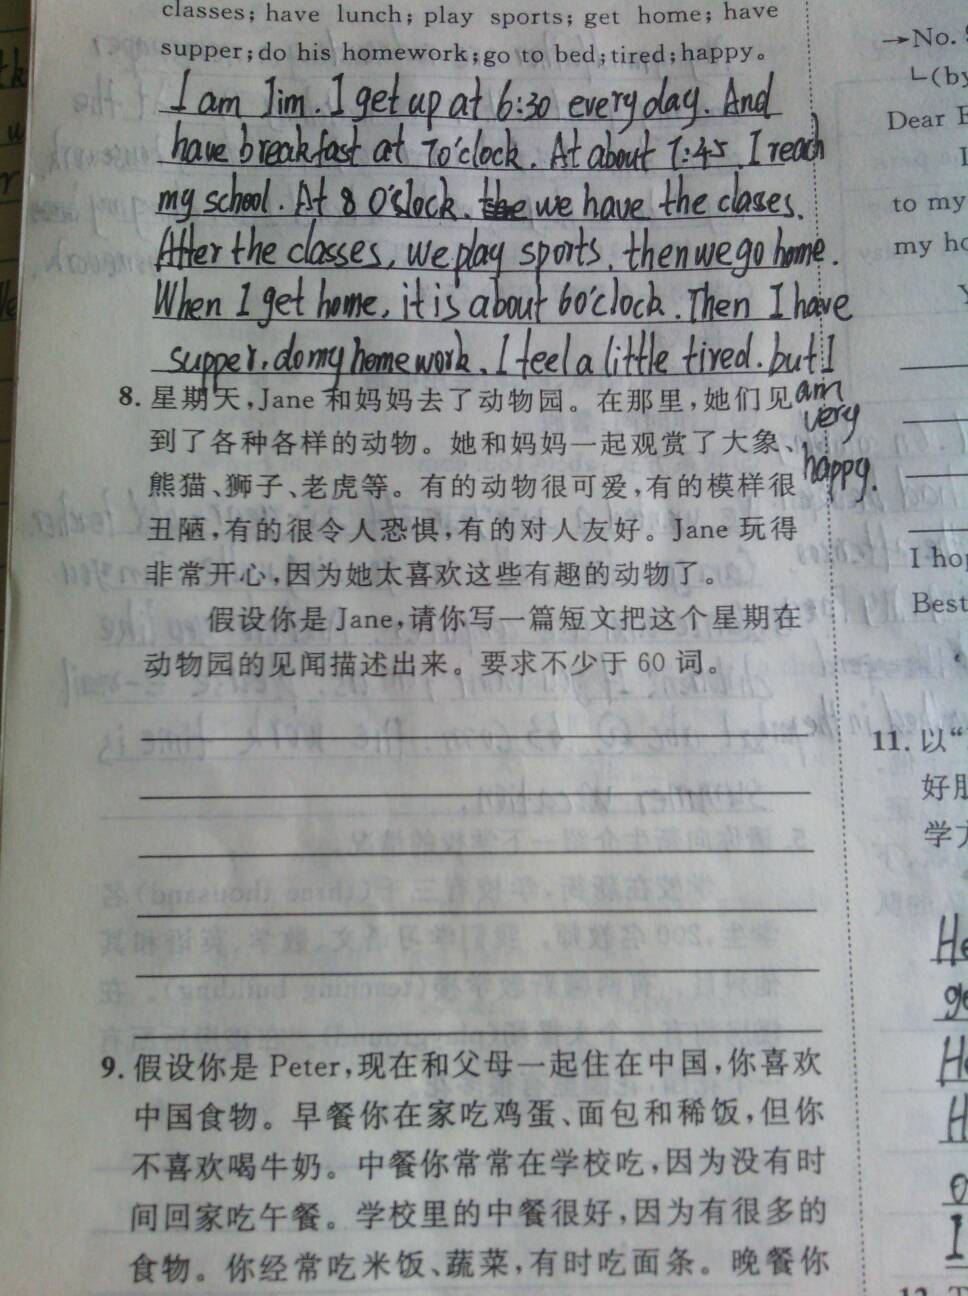 classes; have lunch; play sports; get home; have
supper; do his homework; go to bed; tired; happy。
I am Jim. I get up at 6:30 every day. And
have breakfast at 7o'clock. At about 7:45 I reach
my school. At 8 O'slock. we have the clases.
After the classes, we play sports. then we go home.
When I get home, it is about 6o'clock. Then I have
supper. do my home work. I feel a little tired. but I
am
very
happy.
8. 星期天,Jane 和妈妈去了动物园。在那里,她们见
到了各种各样的动物。她和妈妈一起观赏了大象、
熊猫、狮子、老虎等。有的动物很可爱,有的模样很
丑陋,有的很令人恐惧,有的对人友好。Jane 玩得
非常开心,因为她太喜欢这些有趣的动物了。
假设你是 Jane,请你写一篇短文把这个星期在
动物园的见闻描述出来。要求不少于 60 词。
9. 假设你是 Peter,现在和父母一起住在中国,你喜欢
中国食物。早餐你在家吃鸡蛋、面包和稀饭,但你
不喜欢喝牛奶。中餐你常常在学校吃,因为没有时
间回家吃午餐。学校里的中餐很好,因为有很多的
食物。你经常吃米饭、蔬菜,有时吃面条。晚餐你
→No.
(by
Dear
to my
my
I
Best
11. 以“
好朋
学
He